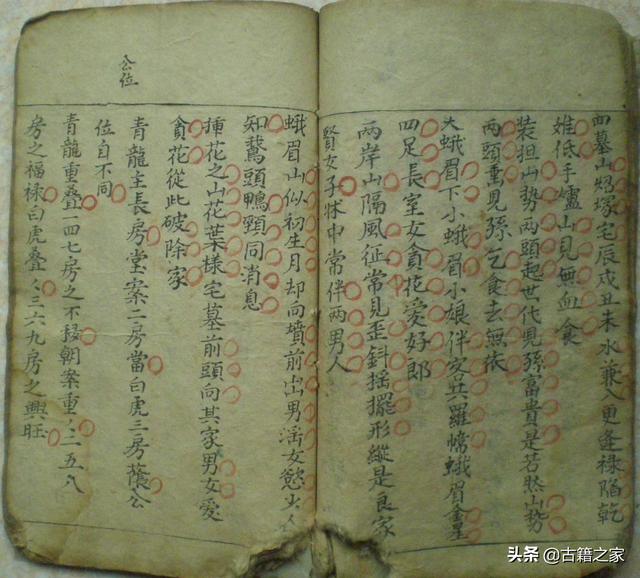 四墓山烟塚宅辰戌丑未水兼入更逢禄陷乾
姓低手爐山見無血食
装担山势两頭起世代児孫富貴是若然山势
两頭垂児孫乞食去無依
大蛾眉下小蛾眉小娘伴女共羅幃蛾眉
四足長室女貪花愛好郎
两岸山隔風征常見歪斜摇擺形縱是良家
賢女子牀中常伴两男人
蛾眉山似初生月却向墳前出男淫女慾
知鵞頭鴨頸同消息
揷花之山花葉樣宅墓前頭向其家男女愛
貪花從此破除家
公位
青龍主長房堂案二房當白虎三房蔭公
位自不同
青龍重叠一四七房之不移朝案重〻二五八
房之福禄白虎叠〻三六九房之興旺
头条@古籍之家